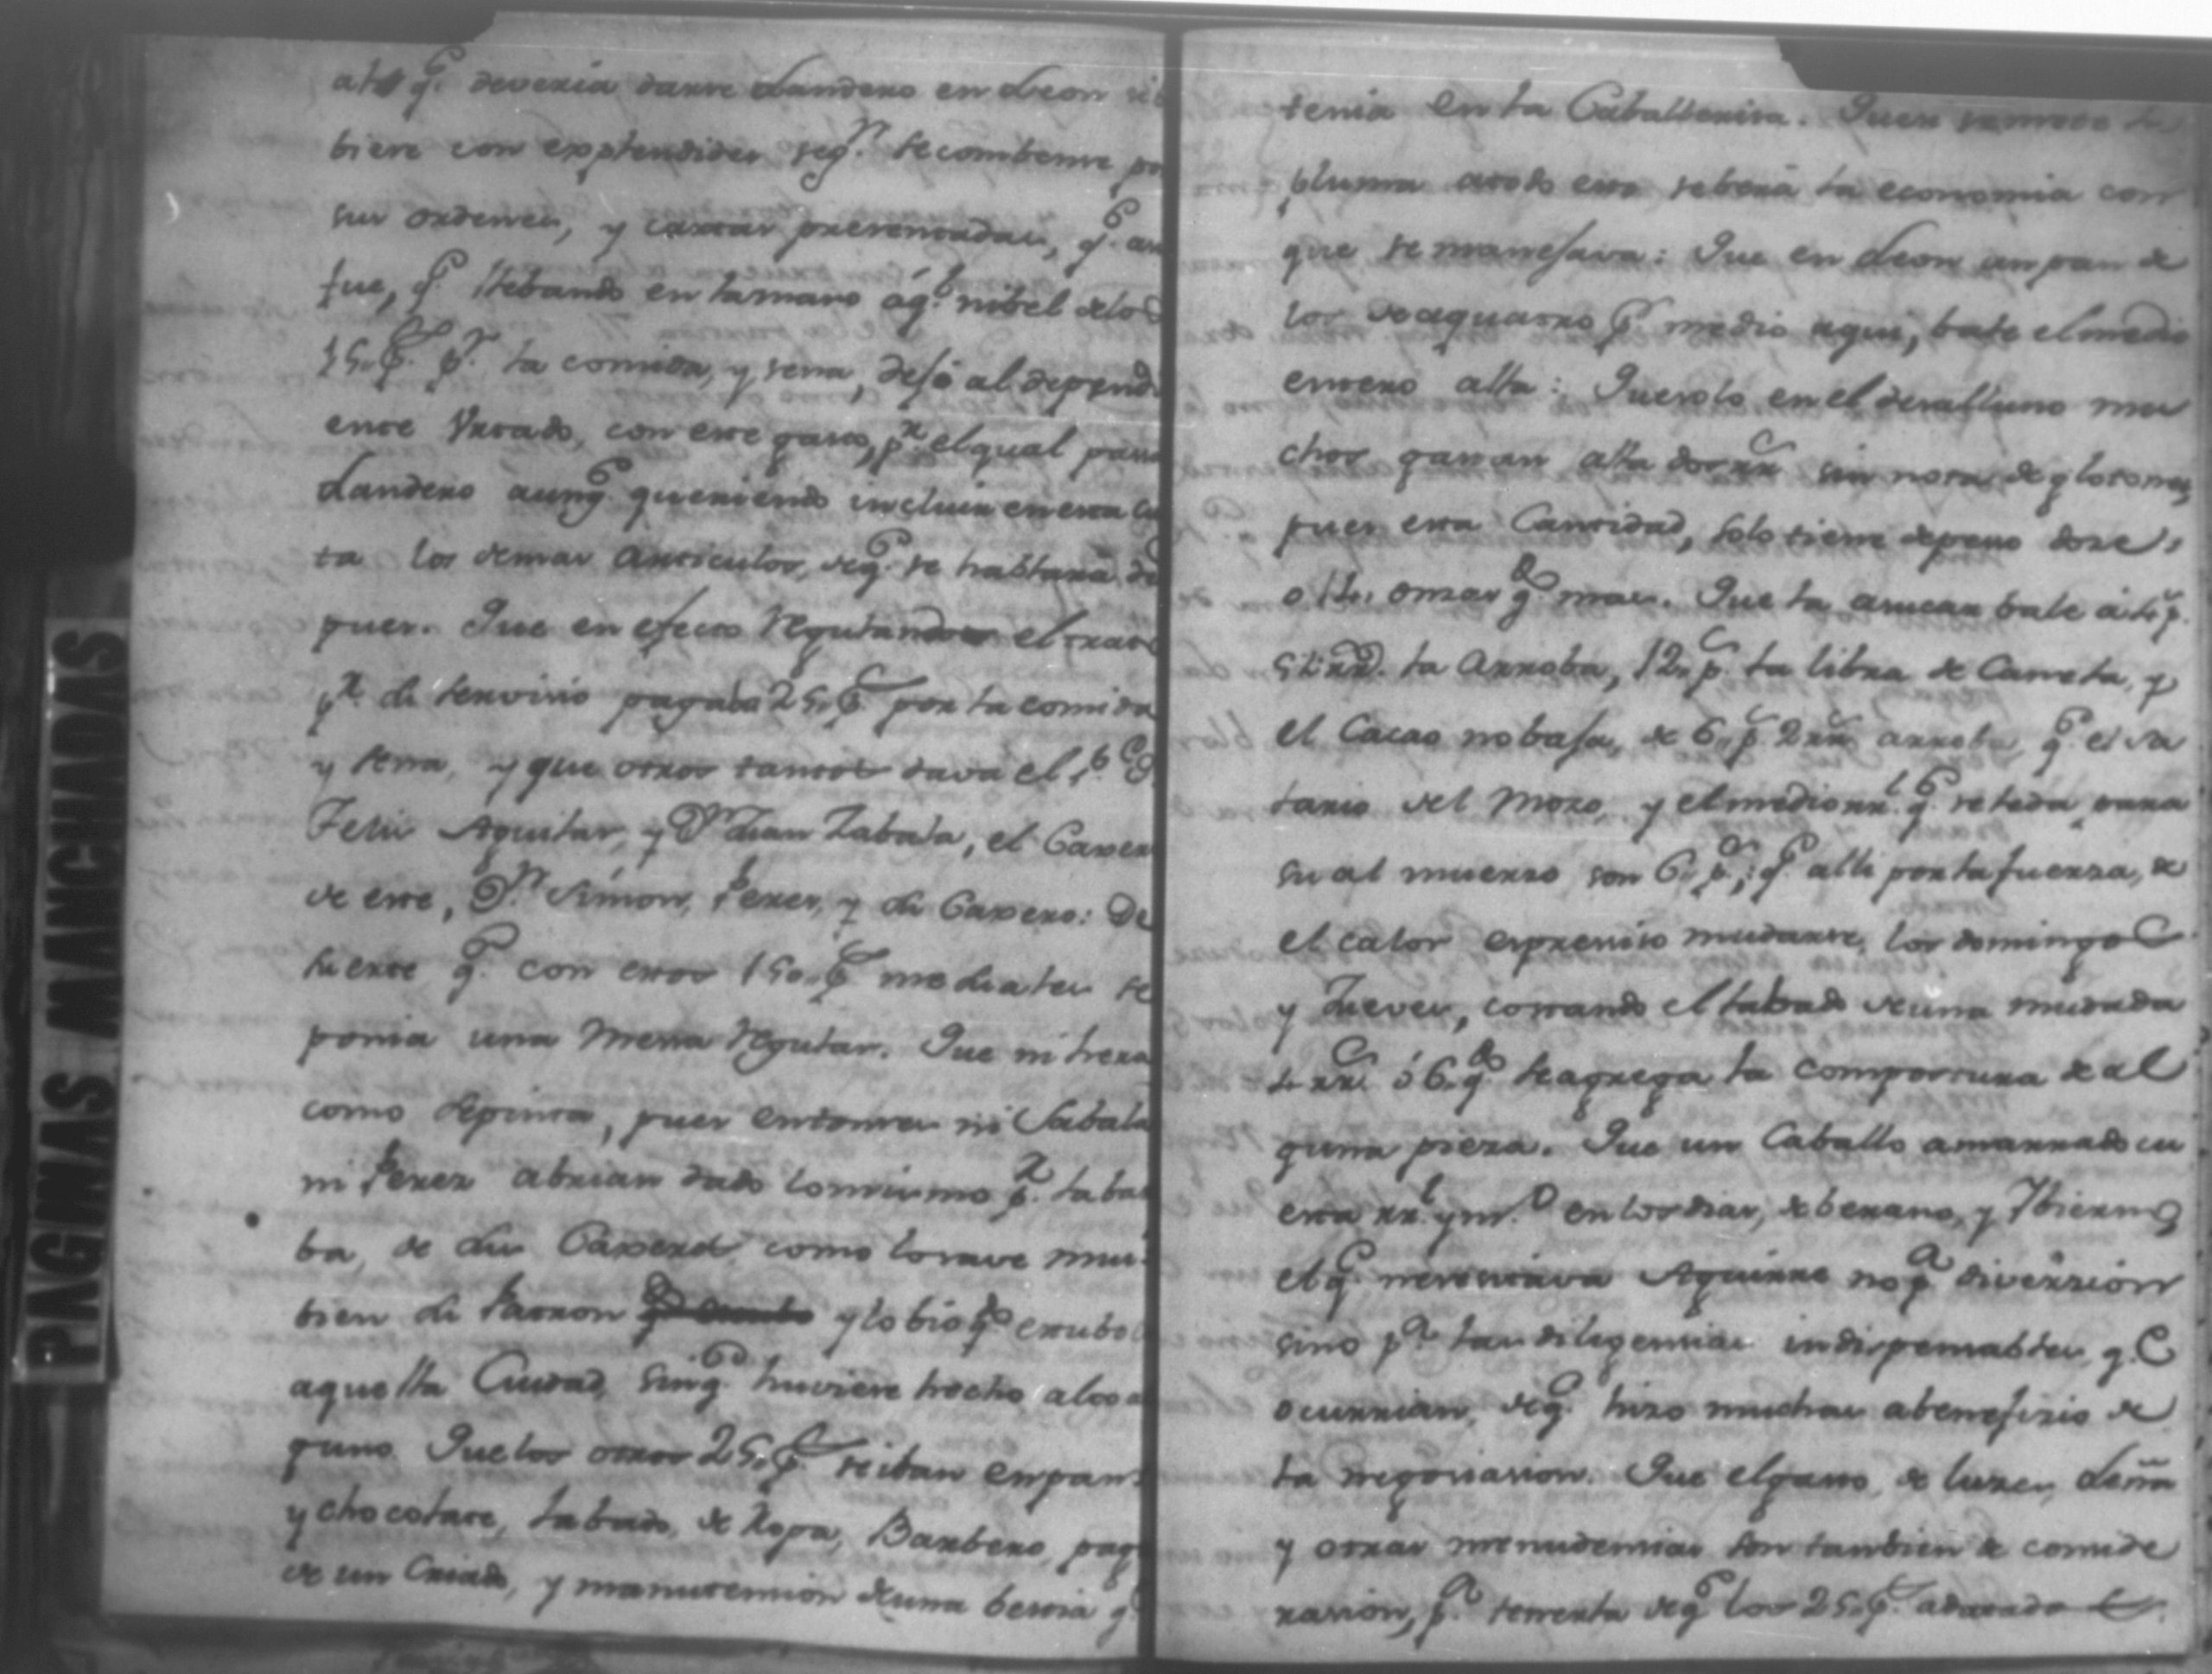 q.e deveria darse Landero en Leon si
biere con explendides seg.n se combense po
sus ordenes, y cartas presentadas, q.e as
fue, q.e llebando en tamano aq.l nibel de los
25. p.s p.r la comida, y sena, dejó al depend
ente Vrtado, con este gasto, p.r el qual pasa
Landero aunq.e queriendo incluir en esta cu
ta los demas articulos, de q.e se hablará de
pues. Que en efecto regulando el
p.a su servicio pagaba 25. p.s por la comida
y sena, y que otros tantos dava el
Felis Aguilar, y D.n Juan Zabala, el Caxero
de este, D.n Simon Peres, y su Caxero: De
suerte q.e con estos 150. p.s mediales se
ponia una Mesa regular. Que ni hera
como depinta, pues entonses ni Sabala
ni Perez abrian dado lo mismo p.r la bar
ba, de su Caxero como lo save mui
bien su Patron y lo bio q.do estubo
aquella Ciudad, sin q.e huviese hecho alto a
guno. Que los otros 25. p.s se iban en pan
y chocolate, labado, de Ropa, Barbero, pag
de un Criado, y manutension de una bestia q.e
tenia en la Caballerisa. Que si
pluma a todo esto se berá la economia con
que se manejava: Que en Leon un pan de
los de a quatro p.r medio aqui, bale el medio
entero alla: Que solo en el desalluno mu
chos gastan alla dos rr.s sin nota de glotones,
pues esta Cantidad, solo tiene de peso dose,
o 14. onsas q.do mas. Que la asucar bale á 4 p.s
4 rr.s la Arroba, 12. p.s la libra de Canela, y
el Cacao no baja, de 6. p.s 2 rr.s arroba, q.e el sa
lario del Moso, y el medio rr.l q.e se le da para
su al muerso son 6. p.s; q.e alli por la fuerza, de
el calor espresiso mudarse, los domingos
y Jueves, costando el labado de una mudada
4 rr.s ó 6. q.do se agrega la compostura de al
guna pieza. Que un Caballo amarrado cu
esta rr.l y m.o en los dias, de berano, y Ybierno
el q.e nesesitava Aguirre no p.a diverzión
sino p.a las diligensias indispensables, q.e
ocurrian, de q.e hizo muchas a benefizio de
la negosiasion. Que el gasto, de luzes, Leña
y otras menudensias son tambien de conside
rasion, p.a senserta de q.e los 25. p.s
PAGINAS MANCHADAS